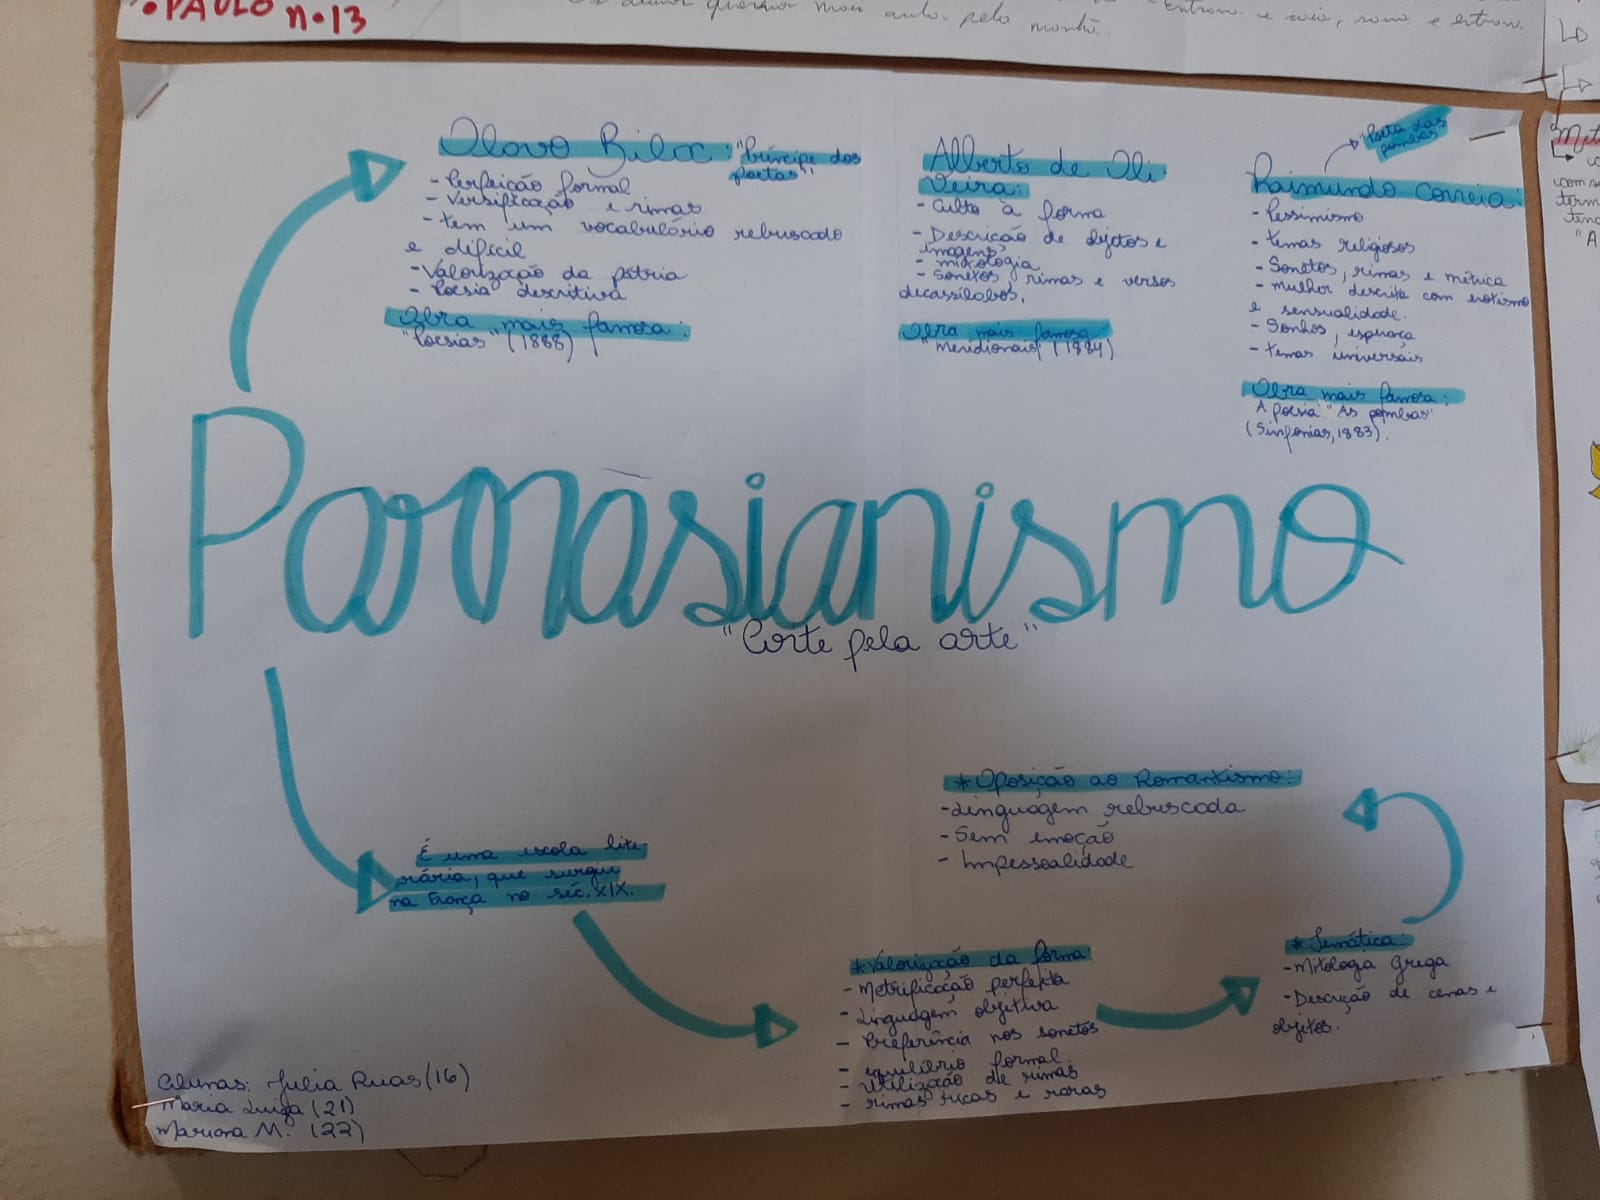 •PAULO n.13
Olavo Bilac: "Príncipe dos
poetas".
- Perfeição formal
- Versificação e rimas
- tem um vocabulário rebuscado
e difícil
- Valorização da pátria
- Poesia descritiva
Obra mais famosa:
"Poesias" (1888)
Alberto de Oli-
veira:
- Culto à forma
- Descrição de objetos e
imagens
- mitologia
- Sonetos, rimas e versos
decassílabos.
Obra mais famosa:
"Meridionais" (1884)
"Poeta das
pombas"
Raimundo Correia:
- Pessimismo
- temas religiosos
- Sonetos, rimas e métrica
- mulher descrita com erotismo
e sensualidade.
- Sonhos, esperança
- temas universais
Obra mais famosa:
A poesia "As pombas"
(Sinfonias, 1883).
Parnasianismo
"Corte pela arte"
É uma escola lite-
rária, que surgiu
na França no séc. XIX.
* Valorização da forma:
- Metrificação perfeita
- Linguagem objetiva
- Preferência nos sonetos
- equilíbrio formal.
- Utilização de rimas
- rimas ricas e raras
* Temática:
- Mitologia Grega
- Descrição de cenas e
objetos.
* Oposição ao Romantismo:
- Linguagem rebuscada
- Sem emoção
- Impessoalidade
Alunas: Julia Ruas (16)
Maria Luiza (21)
Mariana M. (22)